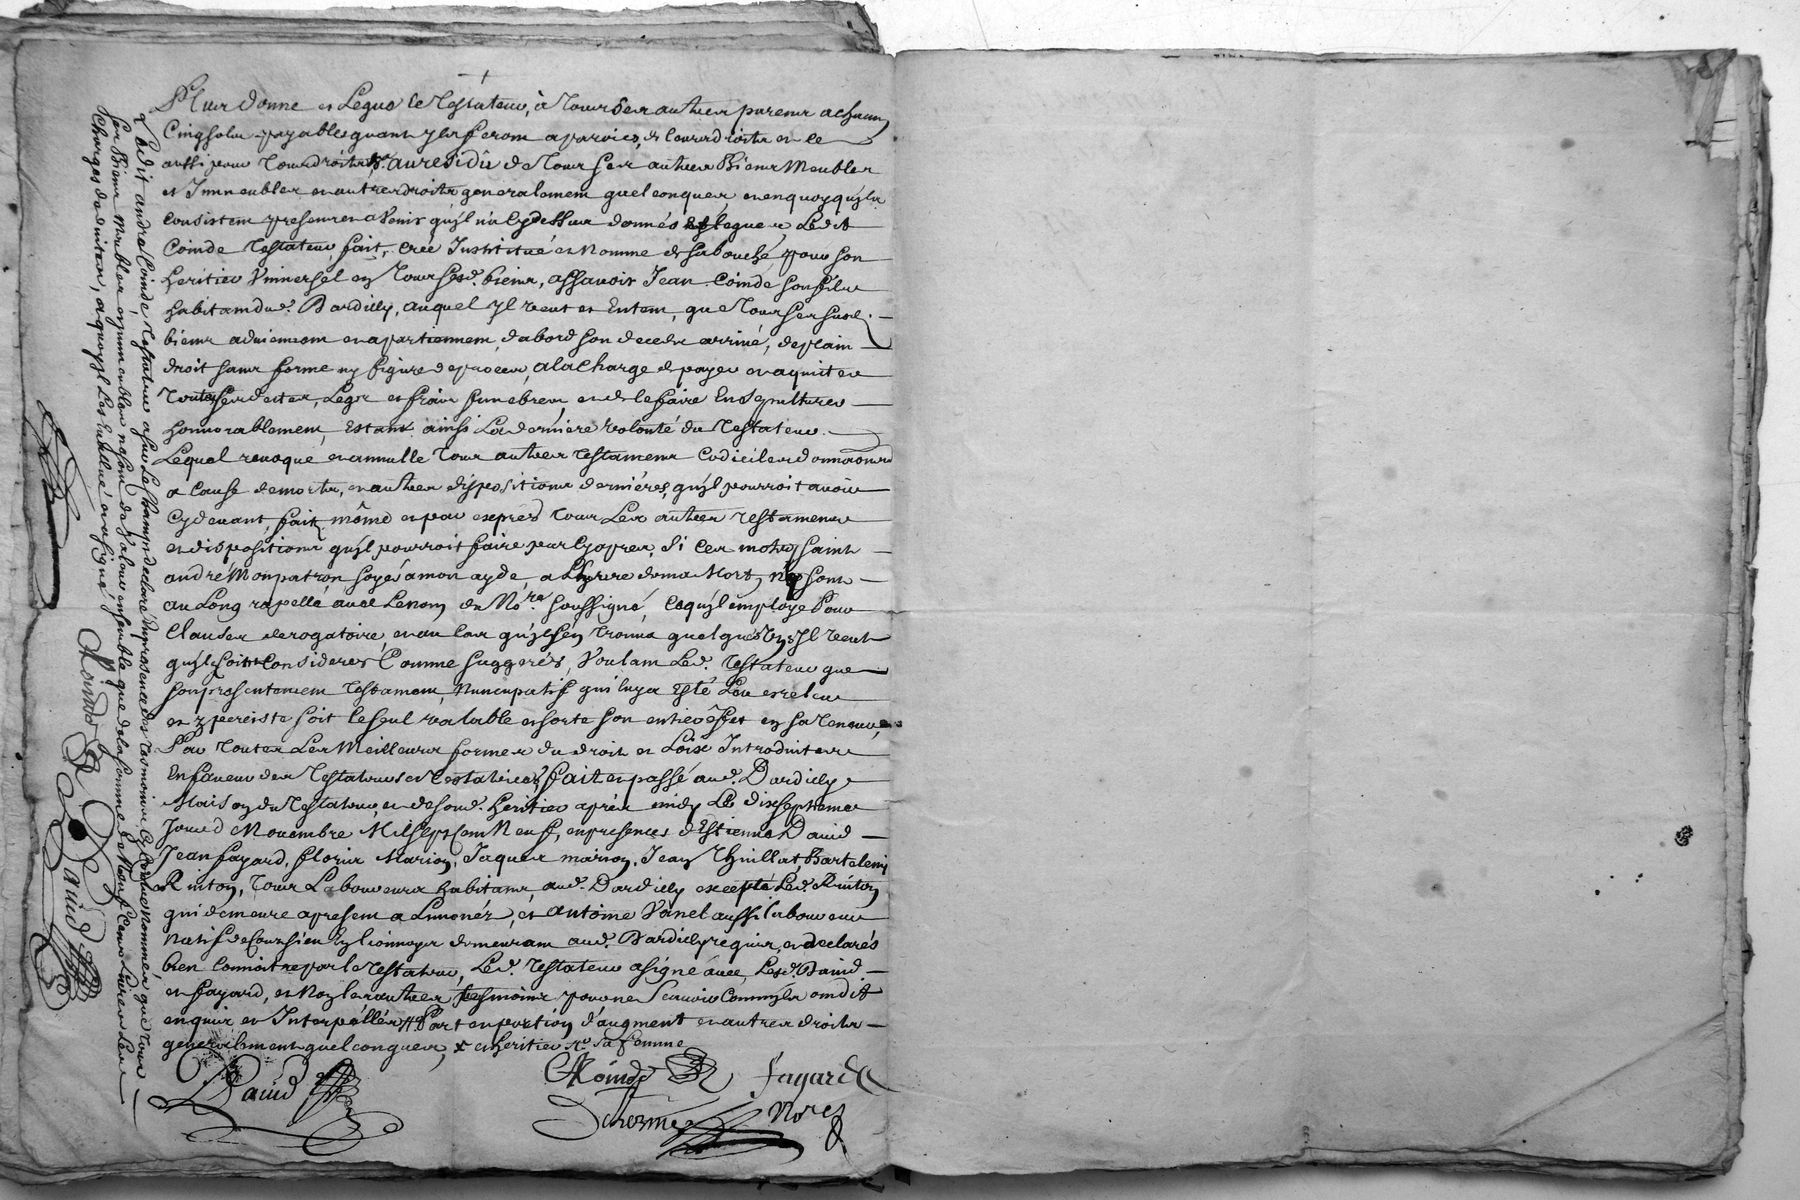 Plus donne et Legue le Testateur, à Tous ses autres parens a chacun
Cinq solz payables quant ylz seront aparvier, de leurs droitz et le
aussi pour Tous droitz. au residû de Tous ses autres Biens Meubles
et Immeubles et autres droitz generalement quelconques et en quoy qu'ylz
consistent presens et a Venir qu'yl n'a Cy dessus donnés et leguez Ledit
Coinde Testateur, fait, crée Instititué et Nomme de sa bouche, pour son
heritier Vniversel en Tous sesd. biens, assavoir Jean Coindé son filz
habitant dud. Dardilly, auquel Jl veut et Entent, que Tous ses susd.
biens adviennent et apartiennent, d'abord son decedz arrivé, de plain
droit sans forme ny figure de procez, a la Charge de payer et aquiter
Toutes ses dettes, Legz et frais funebres, et de le faire Ensepulturer
honnorablement, Estant ainsi La derniere volonté du Testateur.
Lequel revoque et annulle Tous autres Testamens Codiciles donnaons
a Cause de morts, et autres dispositions dernières, qu'yl pourroit avoir
Cy devant, fait, même et par exprès Tous Les autres Testamens
et dispositions qu'yl pourroit faire par Cy apres, Si Ces motz Saint
andré Mon patron soyés a mon ayde, a L'heure de ma Mort, n'y sont
au Long rapellé avec Le nom du No.re soussigné, Ce qu'yl employe Pour
Clauses derogatoire, et au Cas qu'yl s'en Trouva quelques Vns Jl veut
qu'ylz soient Considerés Comme suggerés, Voulant Led. Testateur que
son present Testament Nuncupatif qui luy a Esté Leu et releu
et y persiste soit le seul valable et sorte son entier êffet et sa Teneur,
Par Toutes Les Meilleures formes du droit et Loix Introduites
En faveur des Testateurs et Testatrices, fait et passé aud. Dardilly
Maison du Testateur, et de sond. heritier après midy Le dixseptieme
Jour de Novembre Mil sept Cent Neuf, en presences d'Estienne David
Jean fayard, fleury Marion, Jaques marion, Jean Thuillat, Bartelemy
Ruiton, Tous Laboureurs habitans aud. Dardilly excepté Led. Ruiton
qui demeure a present a Limonéz, et antoine Vanel aussi laboureur
natif de Coursieu En lionnoys demeurant aud. Dardilly requis, et declarés
bien Connoitre par le Testateur, Led. Testateur a signé avec Lesd. David
et fayard, et Non les autres, tesmoins pour ne Scavoir Comm'ylz ont dit
enquis et Interpellés # Part et portion d'augment et autres droitz
generalement quelconques, x et heritier sa femme
David
ACoinde
fayard
Dehozme
Nore
& Ledit andre Coinde, Testateur a sur Le Champ declaré En presence des Tesmoins Cy devant Nommés que Tous
ses Biens Meubles et immeubles ne sont de Valeur ensemble que de la somme de Neuf Cens Livres Les
Charges deduites, a quoy Jl Les Evalué et a signé
ACoinde
David